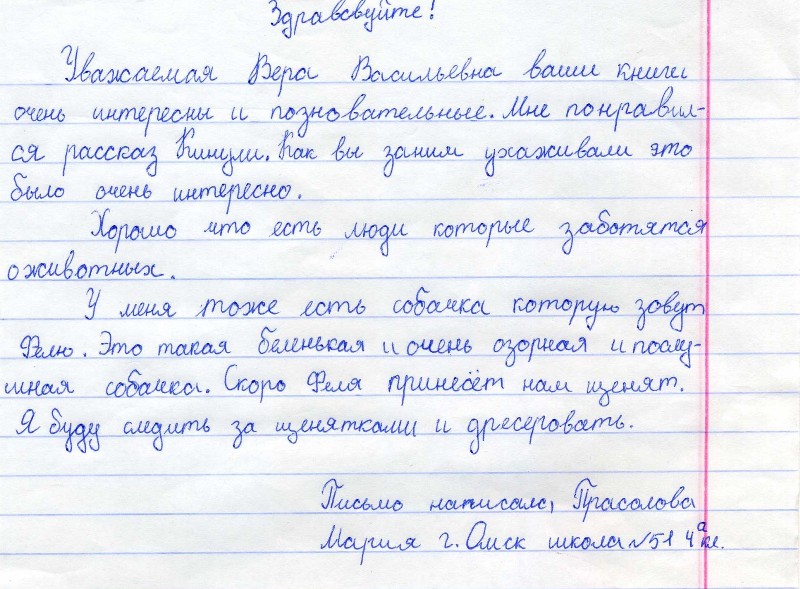 Здравсвуйте!
Уважаемая Вера Васильевна ваши книги
очень интересны и позновательные. Мне понравил-
ся рассказ Кинули. Как вы заним ухаживали это
было очень интересно.
Хорошо что есть люди которые заботятся
оживотных.
У меня тоже есть собачка которую зовут
Фелю. Это такая беленькая и очень озорная и послу-
шная собачка. Скоро Феля принесёт нам щенят.
Я буду следить за щенятками и дресеровать.
Письмо написала, Прасолова
Мария г. Омск школа №51 4а кл.